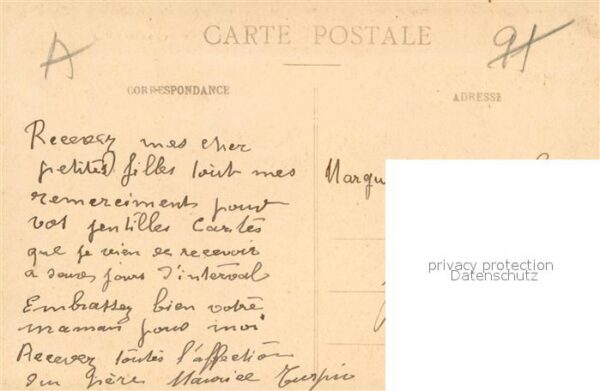 A
91
CARTE POSTALE
CORRESPONDANCE
ADRESSE
Recevez mes cher
petites filles tout mes
remerciments pour
vos gentilles cartes
que je vien de recevoir
à jours d'interval
Embrassez bien votre
maman pour moi
Recevez toutes l'affection
Maurice Turpin
Margu
privacy protection
Datenschutz